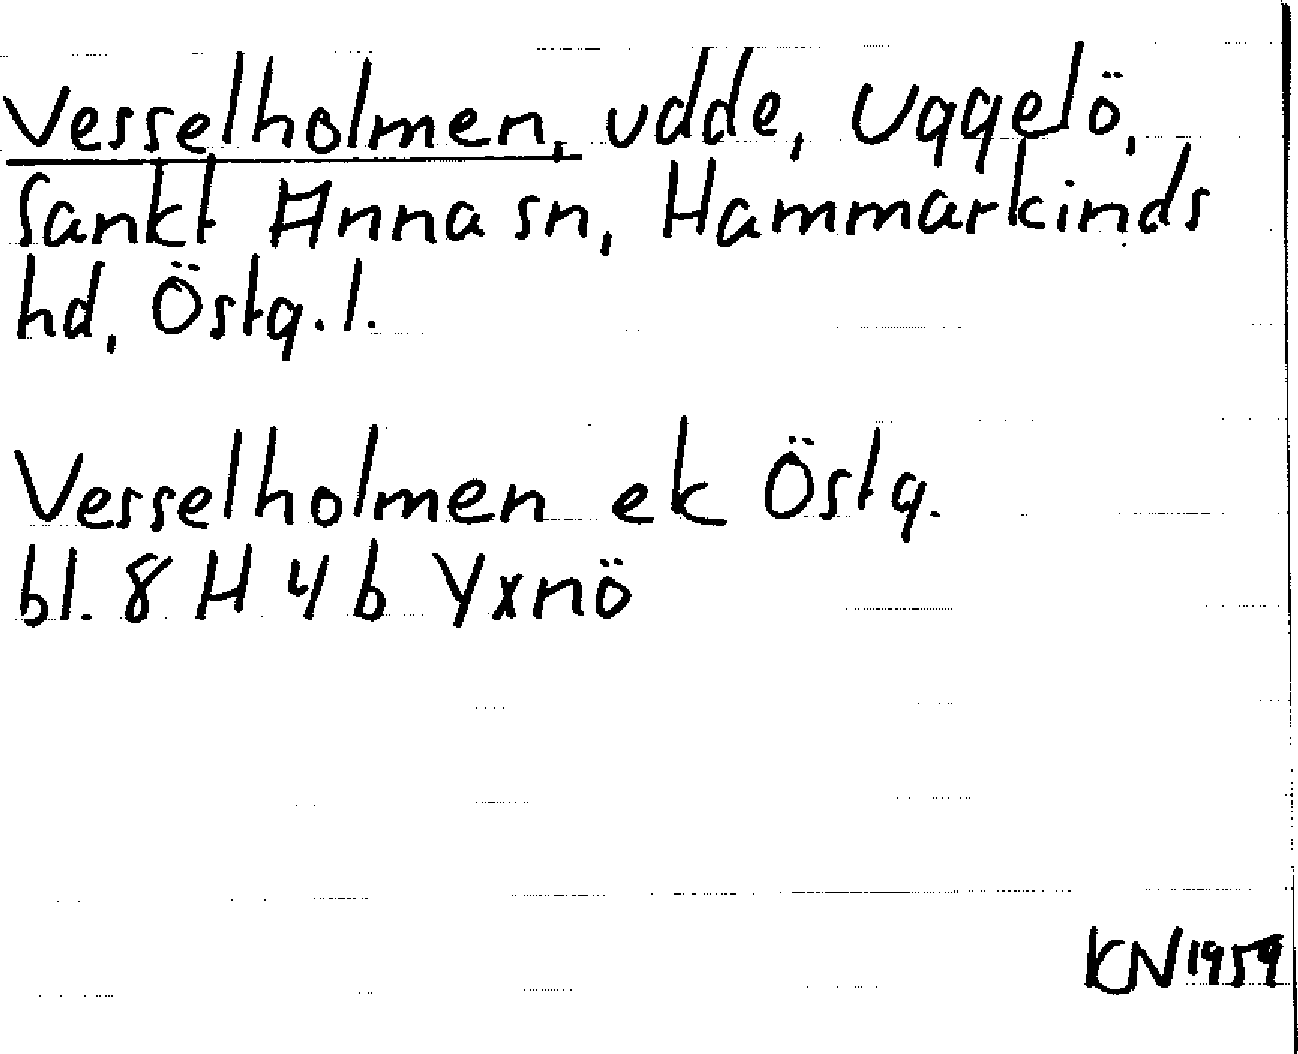 Vesselholmen, udde, Uggelö,
Sankt Anna sn, Hammarkinds
hd, Östg. l.
Vesselholmen ek Östg.
bl. 8 H 4 b Yxnö
KN 1959